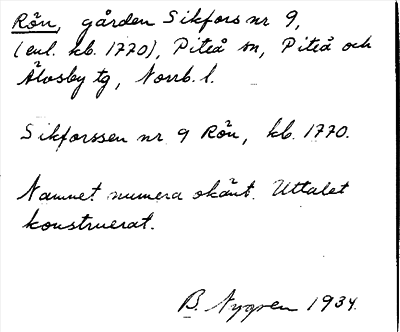 Rön, gården Sikfors nr 9,
(enl. kb. 1770), Piteå sn, Piteå och
Älvsby tg, Norrb. l.
Sikforssen nr 9 Rön, kb. 1770.
Namnet numera okänt. Uttalet
konstruerat.
B. Nygren 1934.